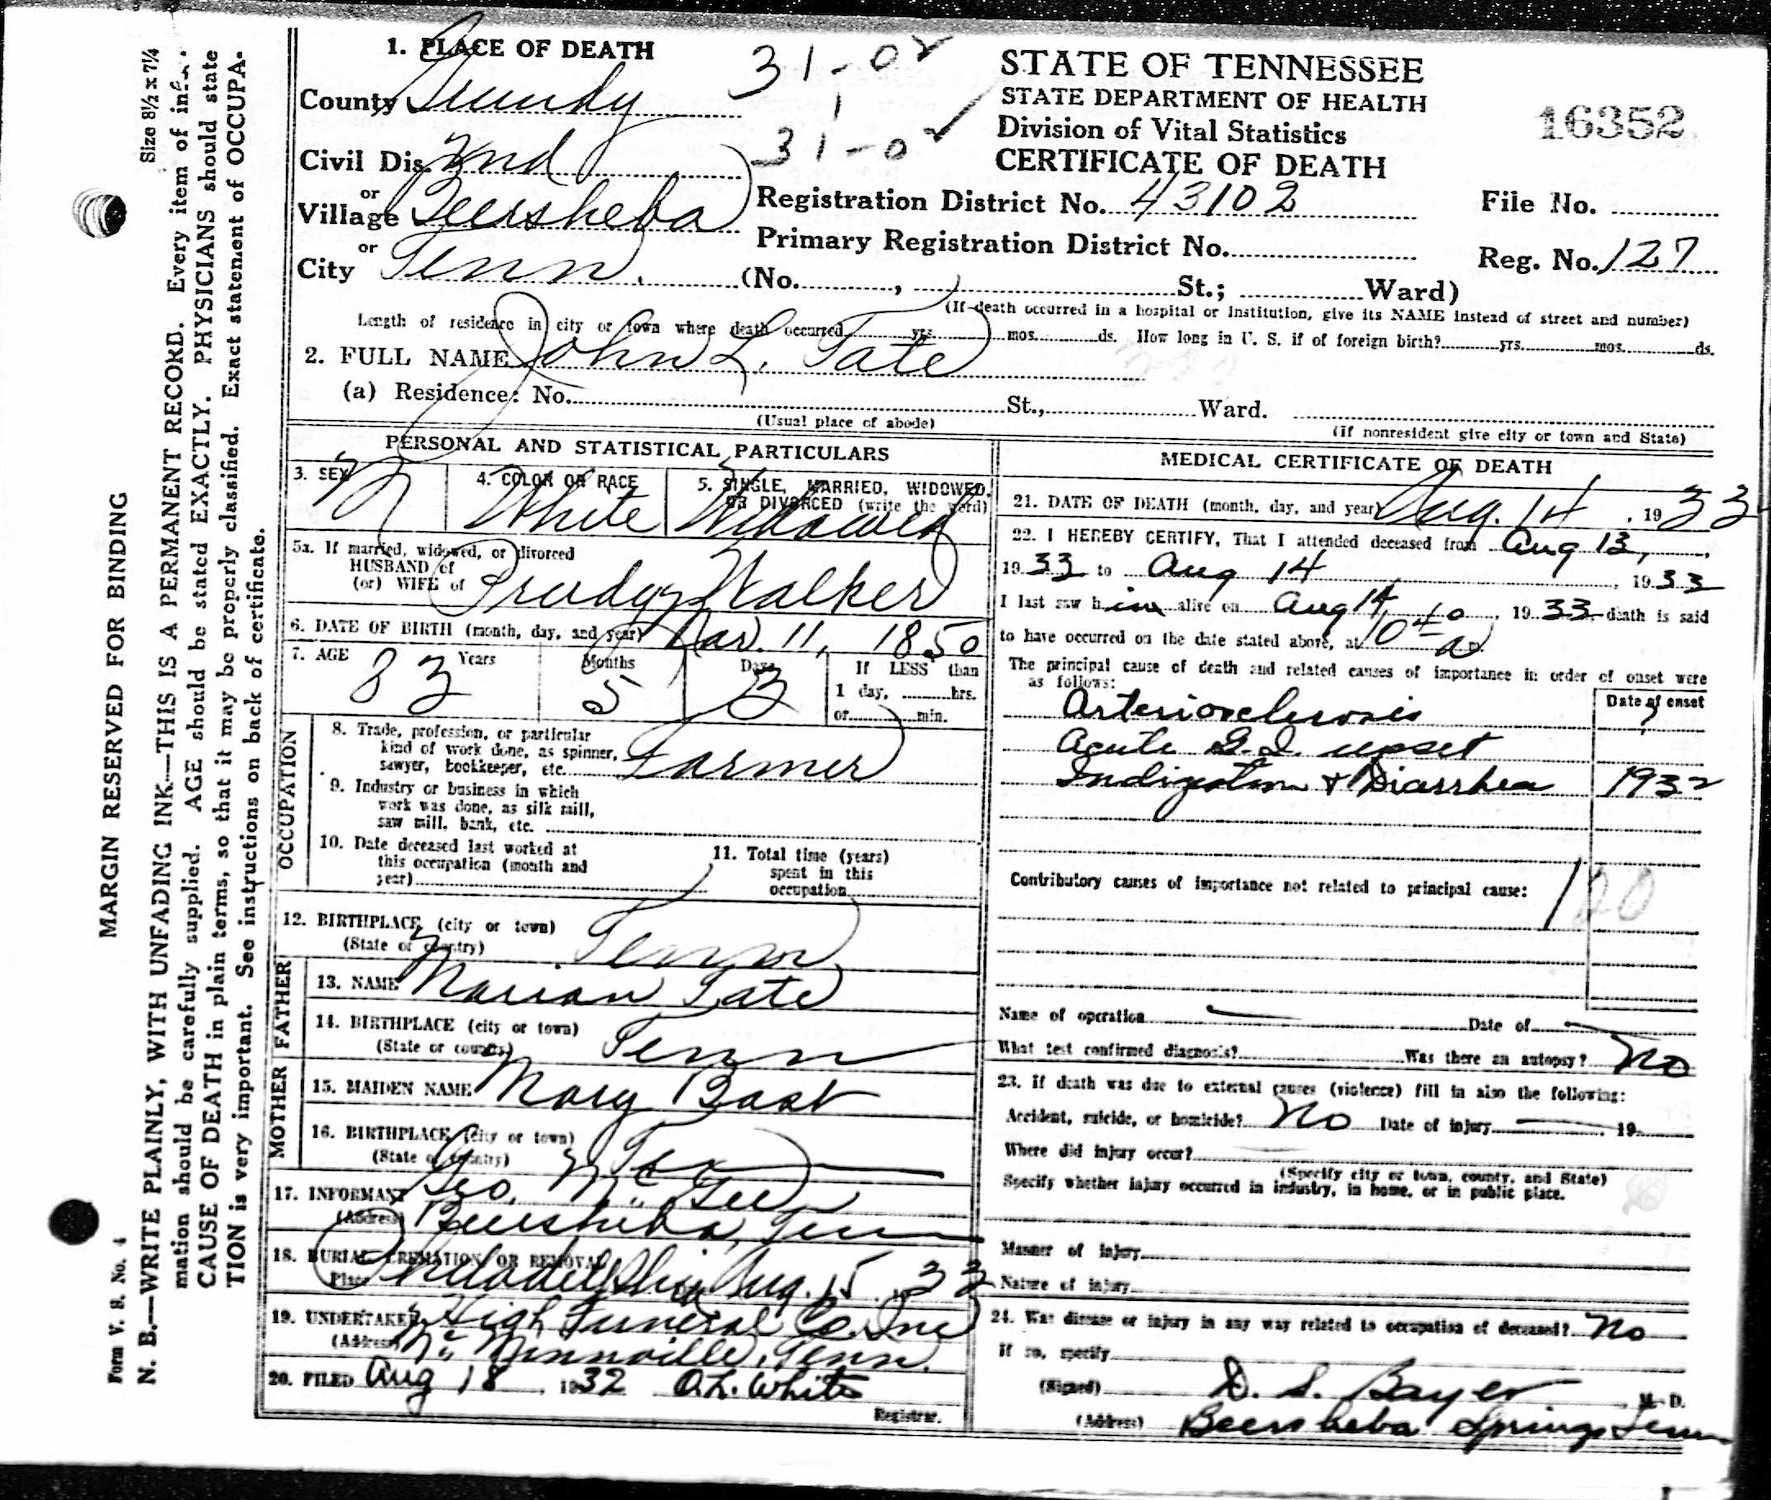 1. PLACE OF DEATH
31-02
County Grundy
1
Civil Dis. 2nd
31-02
or
Village Beersheba
or
City Tenn. (No. , St.; Ward)
STATE OF TENNESSEE
STATE DEPARTMENT OF HEALTH
Division of Vital Statistics
CERTIFICATE OF DEATH
16352
Registration District No. 43102
File No.
Primary Registration District No.
Reg. No. 127
(If death occurred in a hospital or institution, give its NAME instead of street and number)
Length of residence in city or town where death occurred yrs. mos. ds. How long in U. S. if of foreign birth? yrs. mos. ds.
2. FULL NAME John L. Tate
(a) Residence: No. St., Ward.
(Usual place of abode) (If nonresident give city or town and State)
PERSONAL AND STATISTICAL PARTICULARS
3. SEX M
4. COLOR OR RACE White
5. SINGLE, MARRIED, WIDOWED, OR DIVORCED (write the word) Widowed
5a. If married, widowed, or divorced
HUSBAND of
(or) WIFE of Prudy Walker
6. DATE OF BIRTH (month, day, and year) Mar. 11, 1850
7. AGE 83 Years 5 Months 3 Days
If LESS than
1 day, hrs.
or min.
OCCUPATION
8. Trade, profession, or particular
kind of work done, as spinner,
sawyer, bookkeeper, etc. Farmer
9. Industry or business in which
work was done, as silk mill,
saw mill, bank, etc.
10. Date deceased last worked at
this occupation (month and
year)
11. Total time (years)
spent in this
occupation
12. BIRTHPLACE (city or town)
(State or country) Tenn
FATHER
13. NAME Marian Tate
14. BIRTHPLACE (city or town)
(State or country) Tenn
MOTHER
15. MAIDEN NAME Mary Bost
16. BIRTHPLACE (city or town)
(State or country)
17. INFORMANT Geo. McGee
(Address) Beersheba, Tenn
18. BURIAL, CREMATION OR REMOVAL
Place Philadelphia Aug. 15, 1933
19. UNDERTAKER High Funeral Co. Inc
(Address) McMinnville, Tenn.
20. FILED Aug 18, 1932 O.L. White
Registrar.
MEDICAL CERTIFICATE OF DEATH
21. DATE OF DEATH (month, day, and year) Aug. 14, 1933
22. I HEREBY CERTIFY, That I attended deceased from Aug 13,
1933 to Aug 14, 1933
I last saw him alive on Aug 14, 1933 death is said
to have occurred on the date stated above, at 10 40 a m.
The principal cause of death and related causes of importance in order of onset were
as follows:
Date of onset
Arteriosclerosis ?
Acute G.I. upset
Indigestion & Diarrhea 1932
Contributory causes of importance not related to principal cause:
120
Name of operation Date of
What test confirmed diagnosis? Was there an autopsy? No
23. If death was due to external causes (violence) fill in also the following:
Accident, suicide, or homicide? No Date of injury , 19
Where did injury occur?
(Specify city or town, county, and State)
Specify whether injury occurred in industry, in home, or in public place.
Manner of injury
Nature of injury
24. Was disease or injury in any way related to occupation of deceased? No
If so, specify
(Signed) D. S. Bayer M. D.
(Address) Beersheba Springs Tenn
MARGIN RESERVED FOR BINDING
Size 8½ x 7¼
Form V. S. No. 4
N. B.—WRITE PLAINLY, WITH UNFADING INK—THIS IS A PERMANENT RECORD. Every item of infor-
mation should be carefully supplied. AGE should be stated EXACTLY. PHYSICIANS should state
CAUSE OF DEATH in plain terms, so that it may be properly classified. Exact statement of OCCUPA-
TION is very important. See instructions on back of certificate.